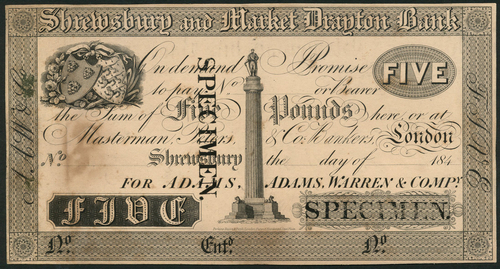 Shrewsbury and Market Drayton Bank
On demand Promise
FIVE
to pay No or Bearer
the Sum of Five Pounds here, or at
Masterman, Peters, & Co. Bankers, London
No Shrewsbury the day of 184
FOR ADAMS, ADAMS, WARREN & COMPY.
FIVE
SPECIMEN.
SPECIMEN.
No. Entd. No.